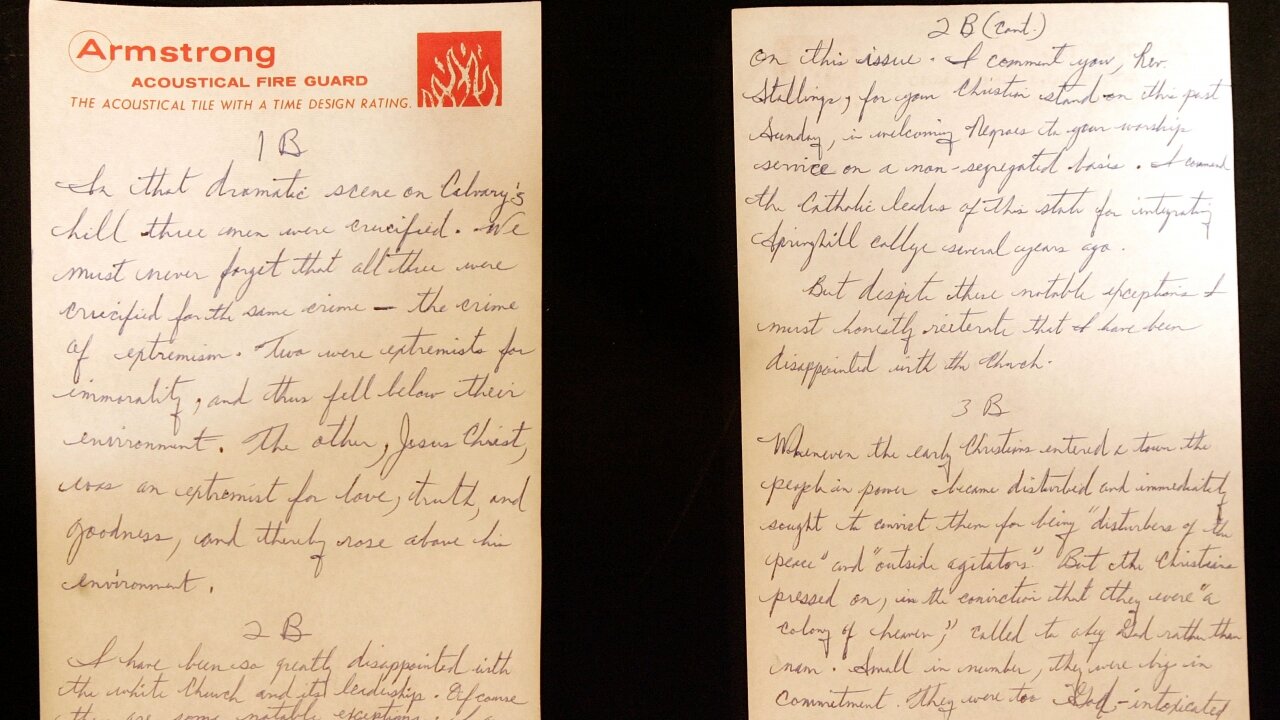 Armstrong
ACOUSTICAL FIRE GUARD
THE ACOUSTICAL TILE WITH A TIME DESIGN RATING.
1 B
In that dramatic scene on Calvary's
hill three men were crucified. We
must never forget that all three were
crucified for the same crime — the crime
of extremism. Two were extremists for
immorality, and thus fell below their
environment. The other, Jesus Christ,
was an extremist for love, truth, and
goodness, and thereby rose above his
environment.
2 B
I have been so greatly disappointed with
the white Church and its leadership. Of course
there are some notable exceptions.
2 B (cont.)
on this issue. I comment you, Rev.
Stallings, for your Christian stand on this past
Sunday, in welcoming Negroes to your worship
service on a non-segregated basis. I commend
the Catholic leaders of this state for integrating
Springhill college several years ago.
But despite these notable exceptions I
must honestly reiterate that I have been
disappointed with the Church.
3 B
Whenever the early Christians entered a town the
people in power became disturbed and immediately
sought to convict them for being "disturbers of the
peace" and "outside agitators." But the Christians
pressed on, in the conviction that they were "a
colony of heaven," called to obey God rather than
man. Small in number, they were big in
commitment. They were too God-intoxicated